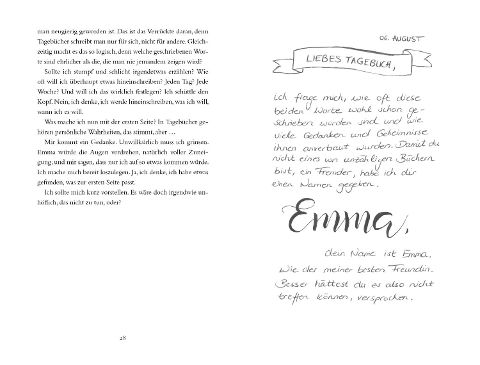 man neugierig geworden ist. Das ist das Verrückte daran, denn
Tagebücher schreibt man nur für sich, nicht für andere. Gleich-
zeitig macht es das so logisch, denn welche geschriebenen Wor-
te sind ehrlicher als die, die man nie jemandem zeigen wird?
Sollte ich stumpf und schlicht irgendetwas erzählen? Wie
oft will ich überhaupt etwas hineinschreiben? Jeden Tag? Jede
Woche? Und will ich das wirklich festlegen? Ich schüttle den
Kopf. Nein, ich denke, ich werde hineinschreiben, was ich will,
wann ich es will.
Was mache ich nun mit der ersten Seite? In Tagebücher ge-
hören persönliche Wahrheiten, das stimmt, aber …
Mir kommt ein Gedanke. Unwillkürlich muss ich grinsen.
Emma würde die Augen verdrehen, natürlich voller Zunei-
gung, und mir sagen, dass nur ich auf so etwas kommen würde.
Ich mache mich bereit loszulegen. Ja, ich denke, ich habe etwas
gefunden, was zur ersten Seite passt.
Ich sollte mich kurz vorstellen. Es wäre doch irgendwie un-
höflich, das nicht zu tun, oder?
28
06. AUGUST
LIEBES TAGEBUCH,
ich frage mich, wie oft diese
beiden Worte wohl schon ge-
schrieben worden sind und wie
viele Gedanken und Geheimnisse
ihnen anvertraut wurden. Damit du
nicht eines von unzähligen Büchern
bist, ein Fremder, habe ich dir
einen Namen gegeben.
Emma,
dein Name ist Emma.
Wie der meiner besten Freundin.
Besser hättest du es also nicht
treffen können, versprochen.